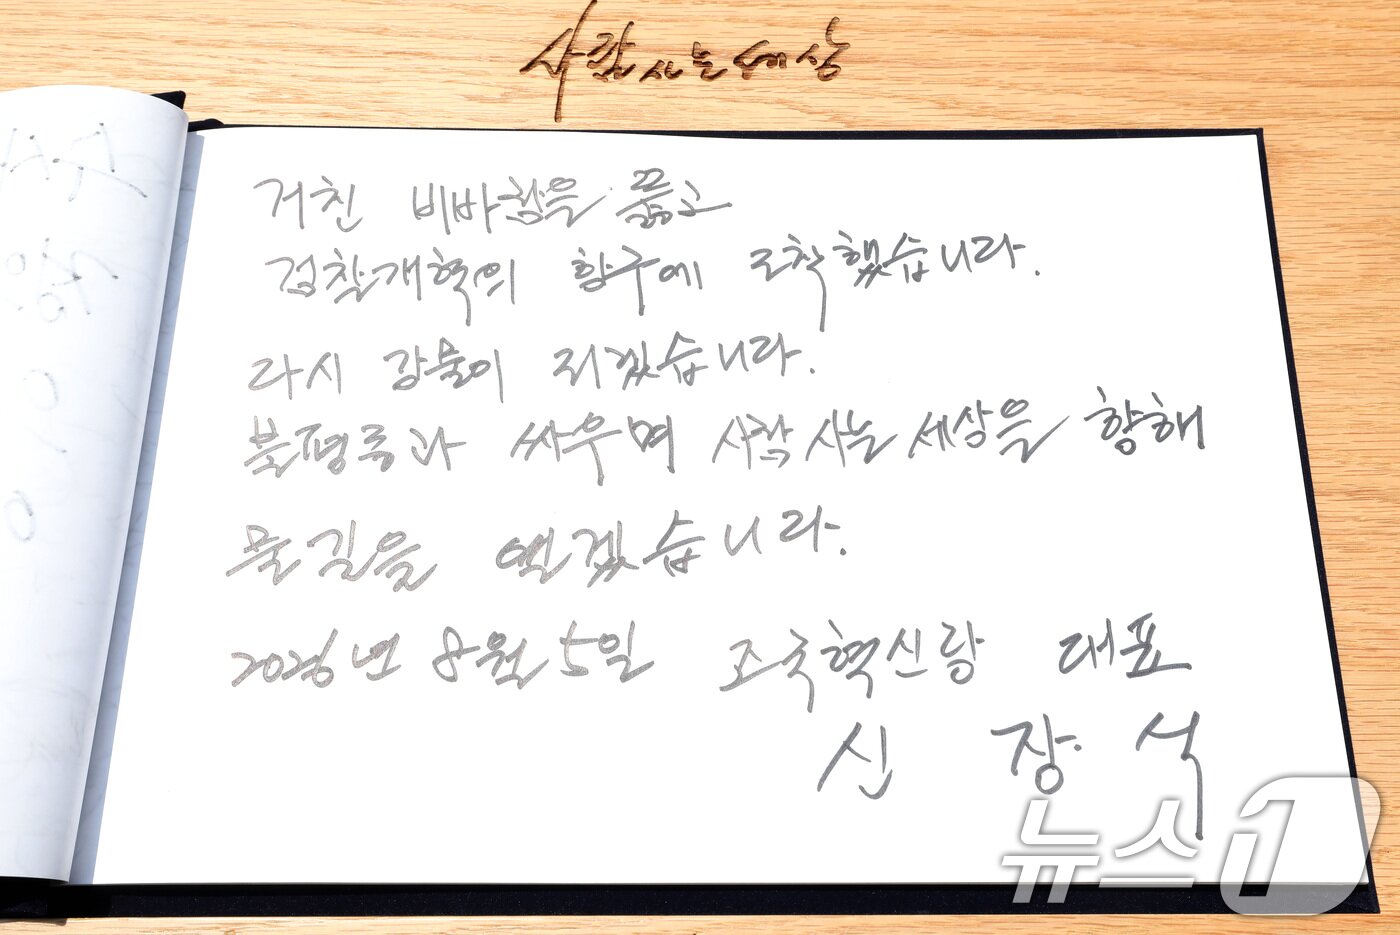 사람사는세상
거친 비바람을 뚫고
검찰개혁의 항구에 도착했습니다.
다시 강물이 되겠습니다.
불평등과 싸우며 사람 사는 세상을 향해
물길을 열겠습니다.
2026년 8월 5일 조국혁신당 대표
신 장 석
뉴스1